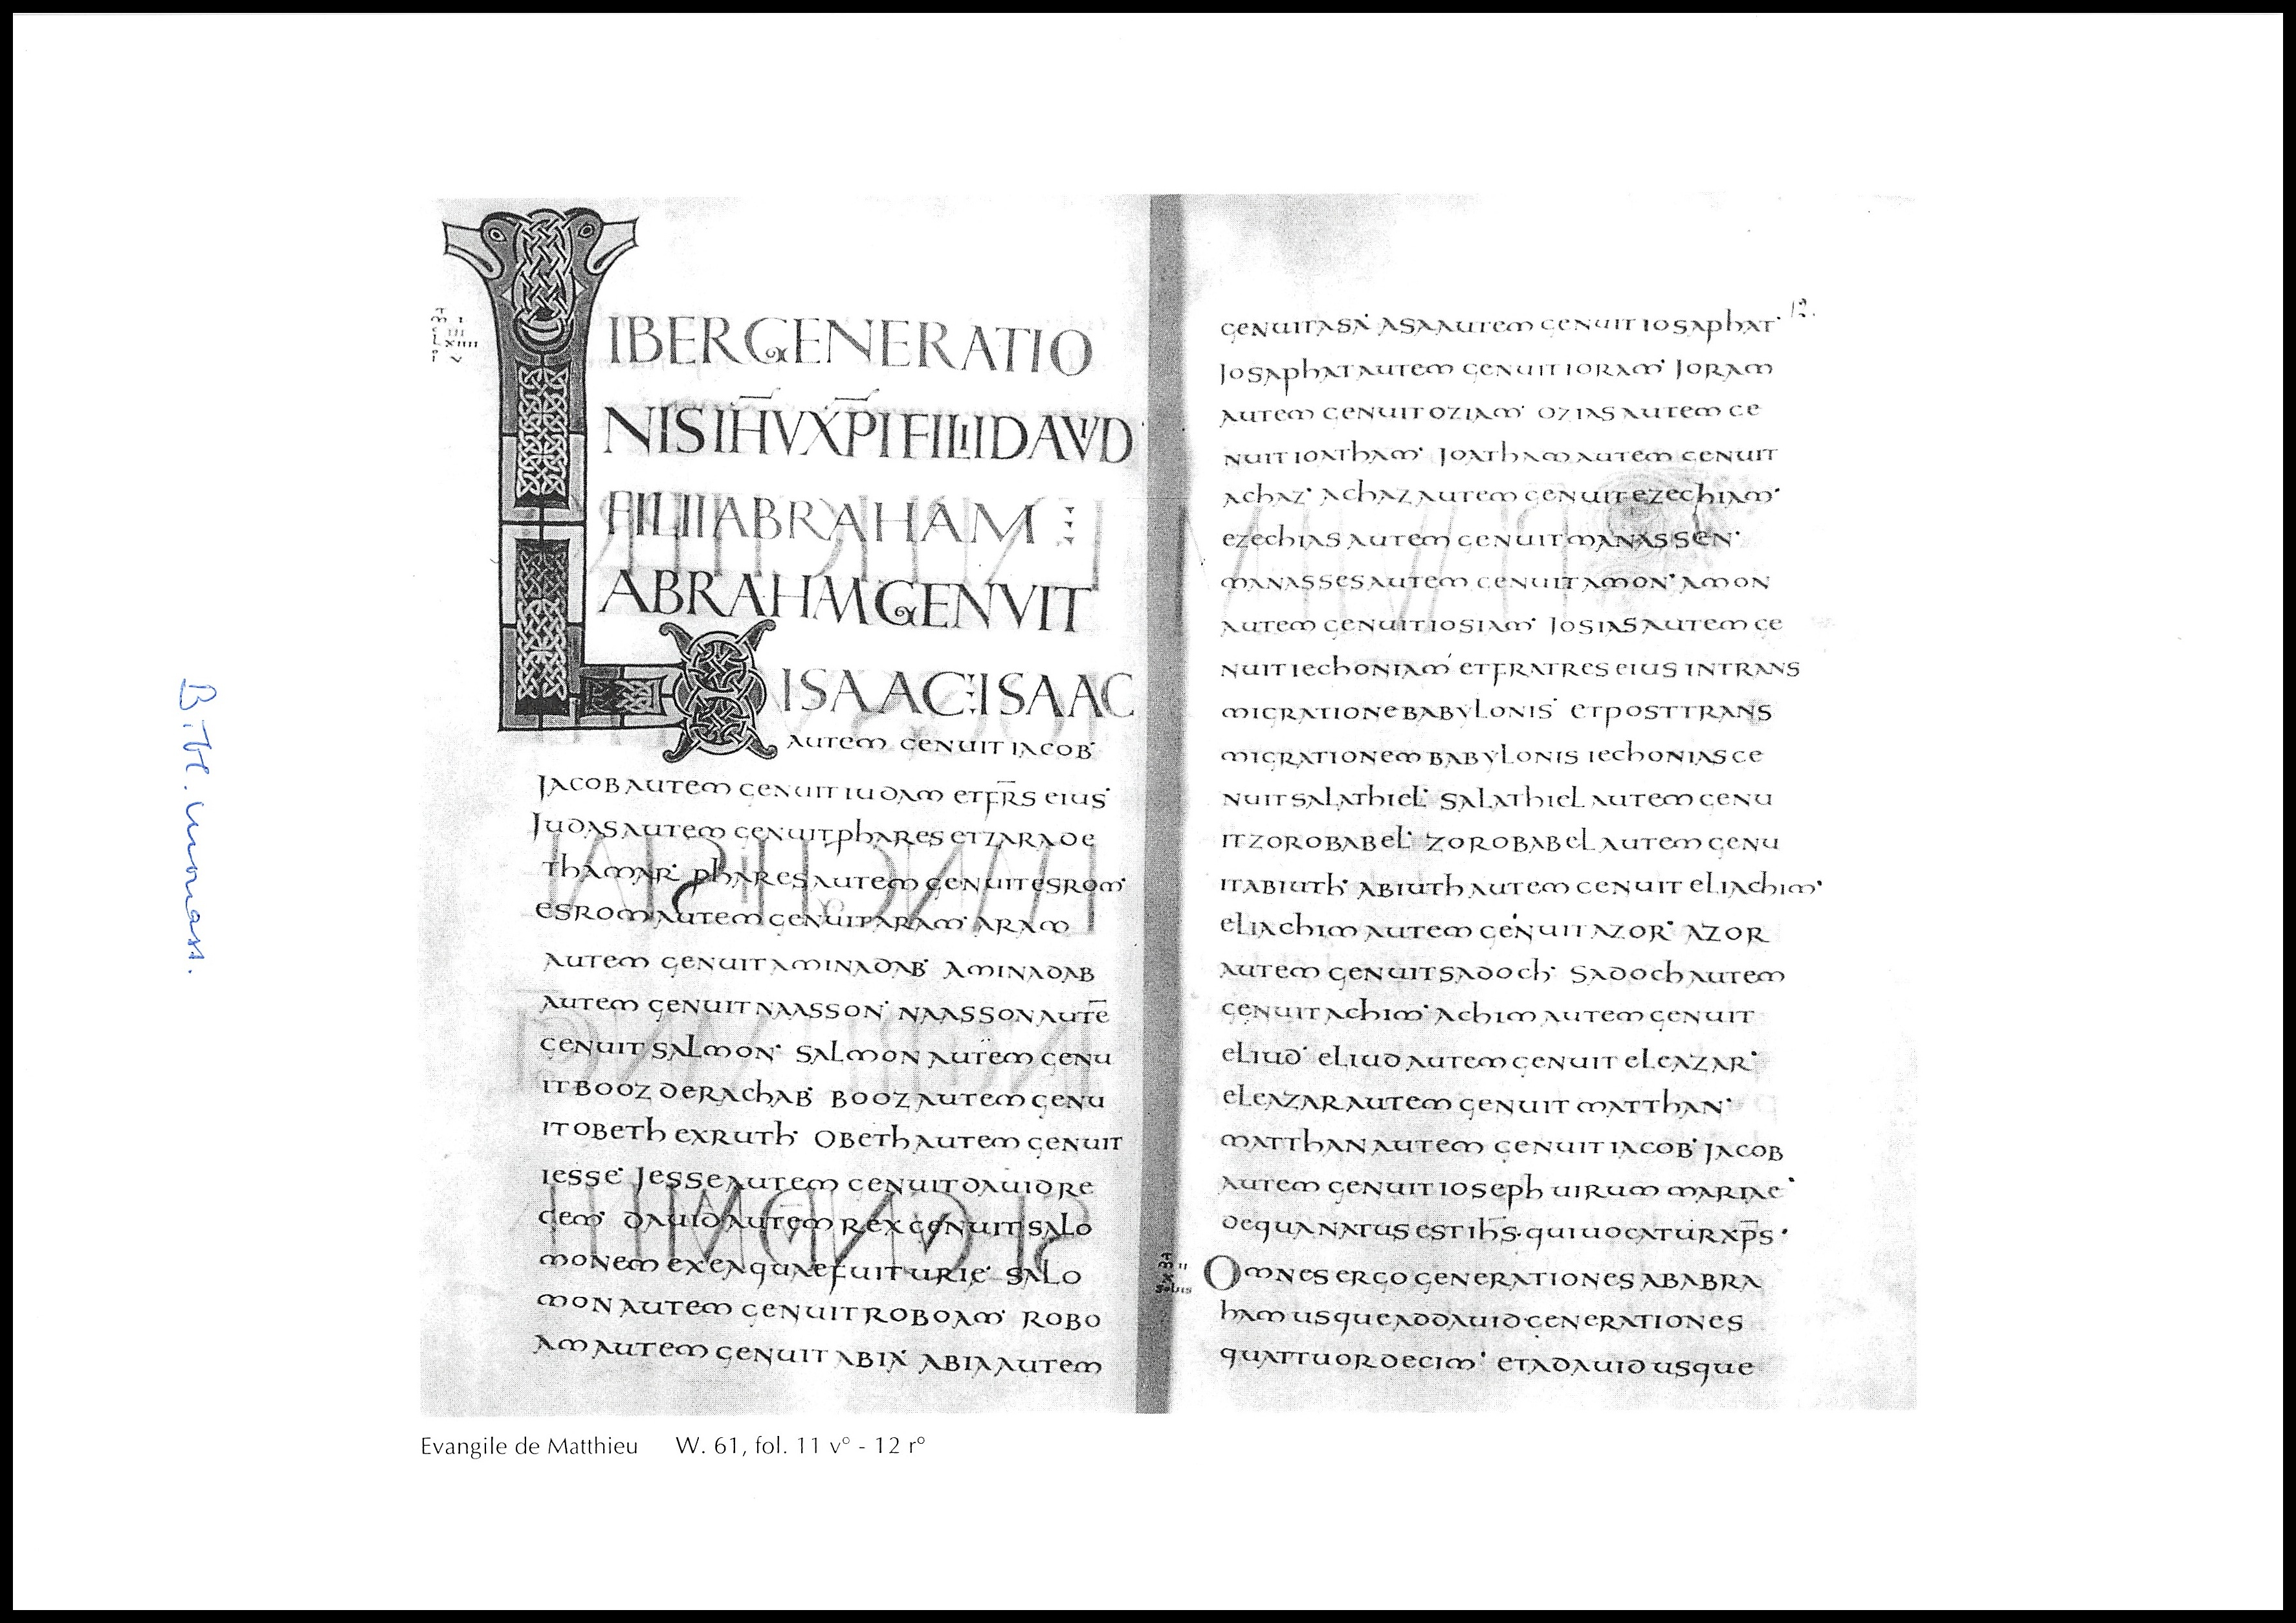 LIBERGENERATIO
NISIH̅VXP̅IFILIIDAVID
FILIIABRAHAM
ABRAHMGENVIT
ISAAC:ISAAC
autem genuit iacob·
Jacob autem genuit iudam et fr̅s eius·
Judas autem genuit phares et zara de
thamar· phares autem genuit esrom·
esrom autem genuit aram· aram
autem genuit aminadab· aminadab
autem genuit naasson· naasson aute̅
genuit salmon· salmon autem genu
it booz de rachab· booz autem genu
it obeth ex ruth· obeth autem genuit
iesse· Jesse autem genuit dauid re
gem· dauid autem rex genuit salo
monem ex ea quae fuit urie· salo
mon autem genuit roboam· robo
am autem genuit abia· abia autem
12.
genuit asa· asa autem genuit iosaphat·
Josaphat autem genuit ioram· Joram
autem genuit oziam· ozias autem ge
nuit ioatham· Joatham autem genuit
achaz· achaz autem genuit ezechiam·
ezechias autem genuit manassen·
manasses autem genuit amon· amon
autem genuit iosiam· Josias autem ge
nuit iechoniam· et fratres eius in trans
migratione babylonis· et post trans
migrationem babylonis iechonias ge
nuit salathiel· salathiel autem genu
it zorobabel· zorobabel autem genu
it abiuth· abiuth autem genuit eliachim·
eliachim autem genuit azor· azor
autem genuit sadoch· sadoch autem
genuit achim· achim autem genuit
eliud· eliud autem genuit eleazar·
eleazar autem genuit matthan·
matthan autem genuit iacob· Jacob
autem genuit ioseph uirum mariae·
de qua natus est ih̅s· qui uocatur xp̅s·
Omnes ergo generationes ab abra
ham usque ad dauid generationes
quattuordecim· et a dauid usque
Evangile de Matthieu W. 61, fol. 11 v° - 12 r°